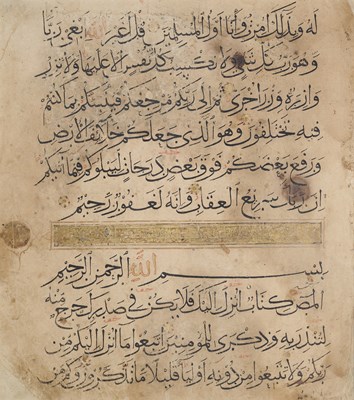 له وبذلك امرت وأنا أول المسلمين قل أغير الله ابغي ربا
وهو رب كل شيء ولا تكسب كل نفس الا عليها ولا تزر
وازرة وزر اخرى ثم الى ربكم مرجعكم فينبئكم بما كنتم
فيه تختلفون وهو الذي جعلكم خلائف الارض
ورفع بعضكم فوق بعض درجات ليبلوكم فيما آتيكم
ان ربك سريع العقاب وانه لغفور رحيم
بسم الله الرحمن الرحيم
المص كتاب انزل اليك فلا يكن في صدرك حرج منه
لتنذر به وذكرى للمؤمنين اتبعوا ما انزل اليكم من
ربكم ولا تتبعوا من دونه اولياء قليلا ما تذكرون وكم من